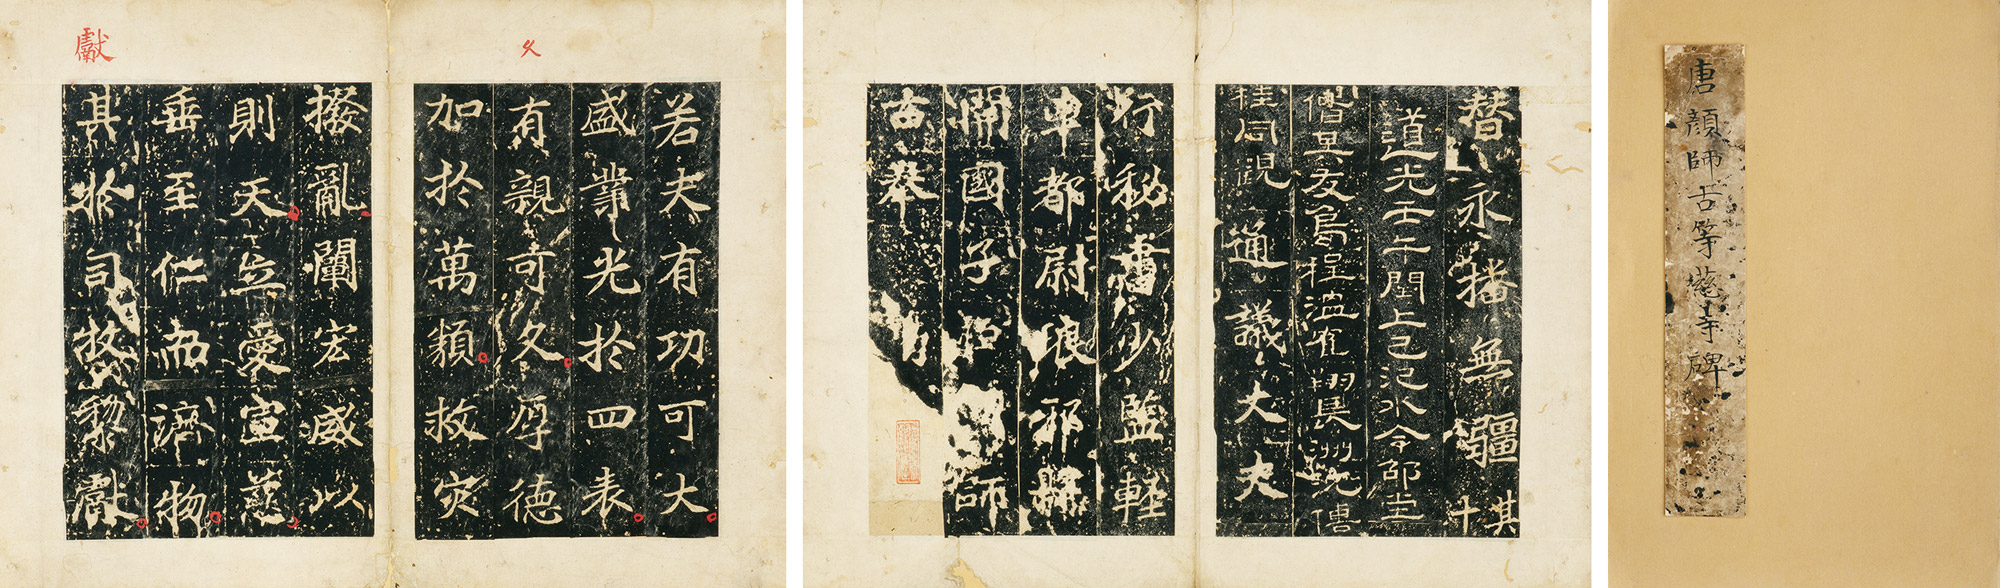 久
若夫有功可大
盛業光於四表
有親奇久厚德
加於萬類救灾
獻
撥亂闡宏威以
則天立愛宣慈
垂至仁而濟物
其於司牧黎獻
替永播無疆其十
道光壬午閏上巳汜水令邵堂
偕吳友烏程温翊長洲沈傳
桂同觀 通議大夫
行秘書少監輕
車都尉琅邪縣
開國子師
古奉
唐顏師古等慈寺碑